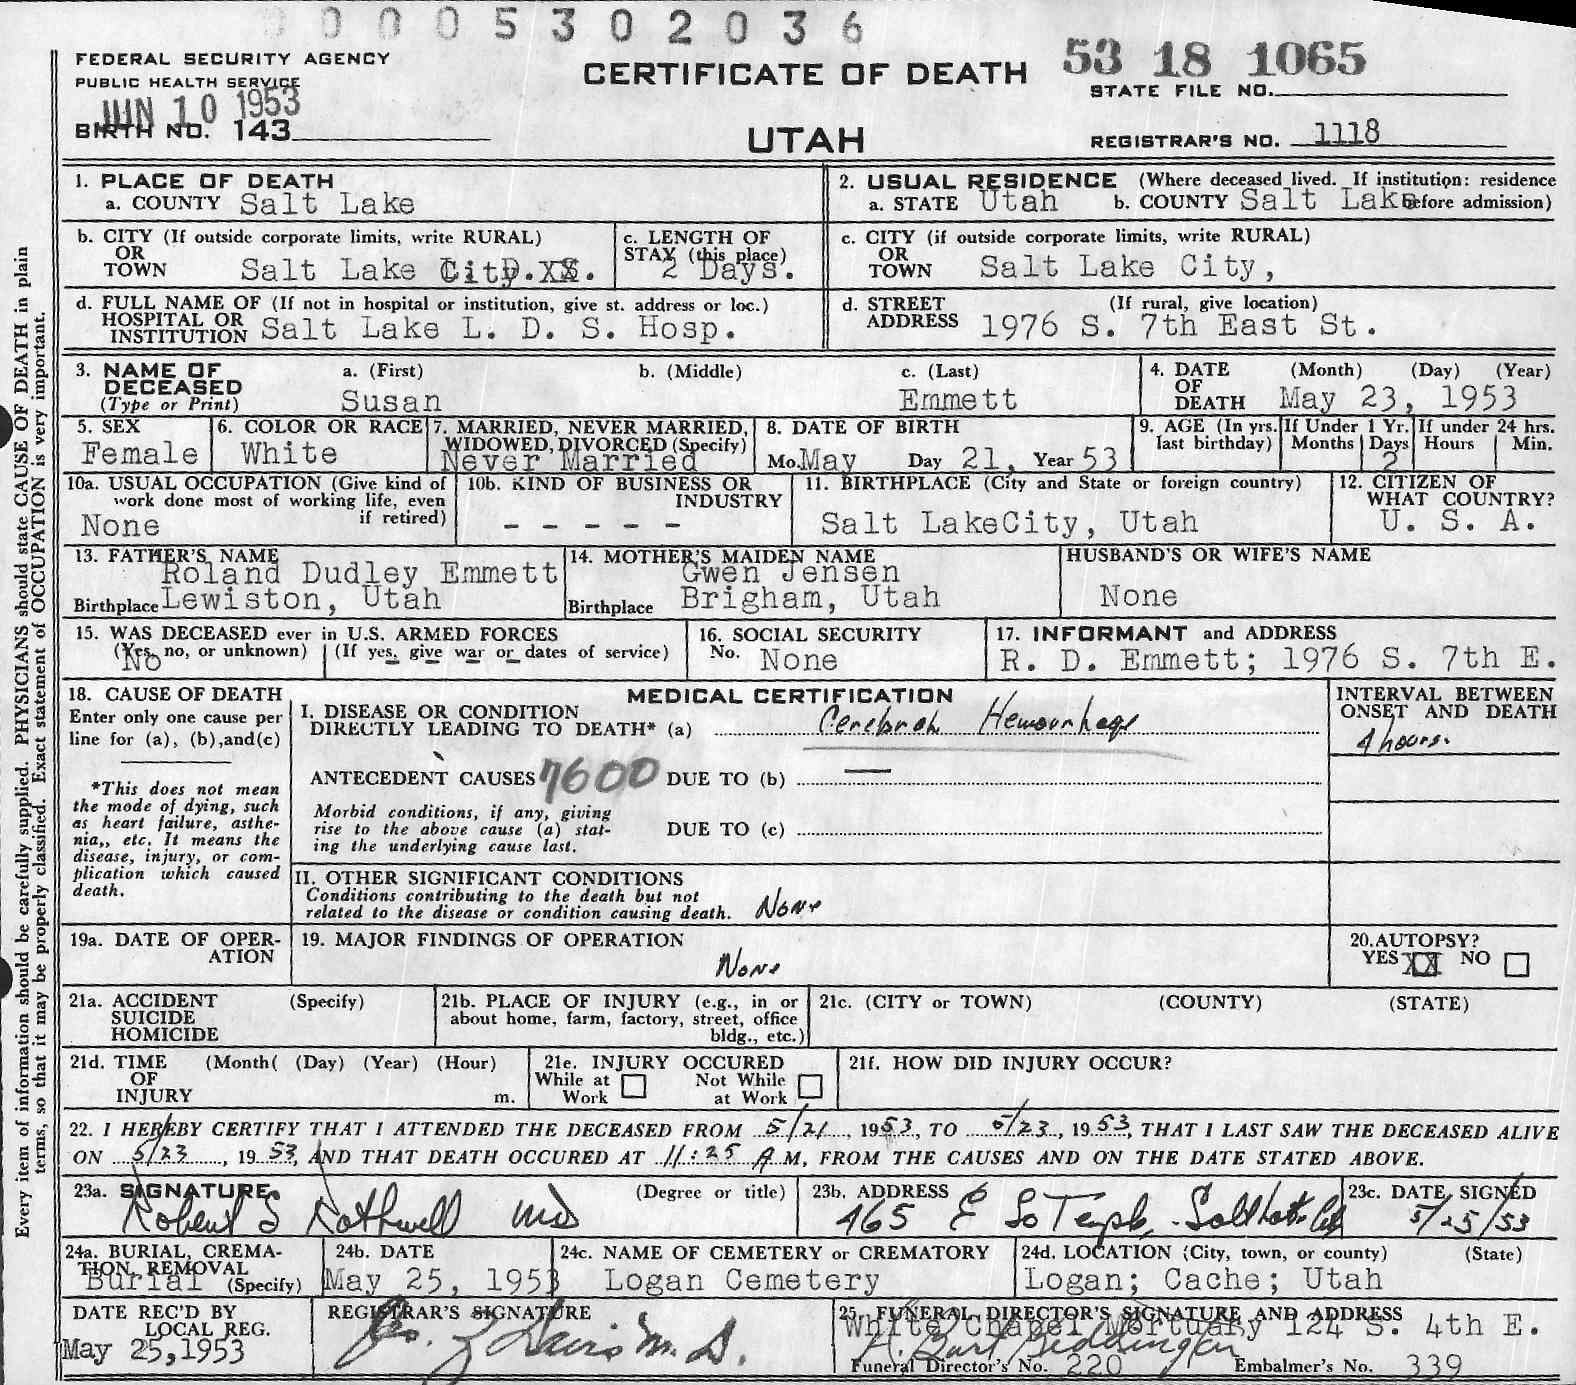 0005302036
FEDERAL SECURITY AGENCY
PUBLIC HEALTH SERVICE
JUN 10 1953
BIRTH NO. 143
CERTIFICATE OF DEATH
UTAH
53 18 1065
STATE FILE NO.
REGISTRAR'S NO. 1118
1. PLACE OF DEATH
a. COUNTY Salt Lake
2. USUAL RESIDENCE (Where deceased lived. If institution: residence before admission)
a. STATE Utah b. COUNTY Salt Lake
b. CITY (If outside corporate limits, write RURAL)
OR
TOWN Salt Lake City.
c. LENGTH OF
STAY (this place)
2 Days.
c. CITY (if outside corporate limits, write RURAL)
OR
TOWN Salt Lake City,
d. FULL NAME OF (If not in hospital or institution, give st. address or loc.)
HOSPITAL OR
INSTITUTION Salt Lake L. D. S. Hosp.
d. STREET (If rural, give location)
ADDRESS 1976 S. 7th East St.
3. NAME OF
DECEASED
(Type or Print)
a. (First) b. (Middle) c. (Last)
Susan Emmett
4. DATE (Month) (Day) (Year)
OF
DEATH May 23, 1953
5. SEX
Female
6. COLOR OR RACE
White
7. MARRIED, NEVER MARRIED,
WIDOWED, DIVORCED (Specify)
Never Married
8. DATE OF BIRTH
Mo. May Day 21, Year 53
9. AGE (In yrs. last birthday)
If Under 1 Yr.
Months Days
2
If under 24 hrs.
Hours Min.
10a. USUAL OCCUPATION (Give kind of
work done most of working life, even
if retired)
None
10b. KIND OF BUSINESS OR
INDUSTRY
- - - - -
11. BIRTHPLACE (City and State or foreign country)
Salt LakeCity, Utah
12. CITIZEN OF
WHAT COUNTRY?
U. S. A.
13. FATHER'S NAME
Roland Dudley Emmett
Birthplace Lewiston, Utah
14. MOTHER'S MAIDEN NAME
Gwen Jensen
Birthplace Brigham, Utah
HUSBAND'S OR WIFE'S NAME
None
15. WAS DECEASED ever in U.S. ARMED FORCES
(Yes, no, or unknown) (If yes, give war or dates of service)
No - - - -
16. SOCIAL SECURITY
No. None
17. INFORMANT and ADDRESS
R. D. Emmett; 1976 S. 7th E.
18. CAUSE OF DEATH
Enter only one cause per
line for (a), (b),and(c)
*This does not mean
the mode of dying, such
as heart failure, asthe-
nia,, etc. It means the
disease, injury, or com-
plication which caused
death.
MEDICAL CERTIFICATION
I. DISEASE OR CONDITION
DIRECTLY LEADING TO DEATH* (a) Cerebral Hemorrhage
INTERVAL BETWEEN
ONSET AND DEATH
4 hours.
ANTECEDENT CAUSES 7600 DUE TO (b) —
Morbid conditions, if any, giving
rise to the above cause (a) stat-
ing the underlying cause last.
DUE TO (c)
II. OTHER SIGNIFICANT CONDITIONS
Conditions contributing to the death but not
related to the disease or condition causing death. None
19a. DATE OF OPER-
ATION
19. MAJOR FINDINGS OF OPERATION
None
20.AUTOPSY?
YES XX NO
21a. ACCIDENT (Specify)
SUICIDE
HOMICIDE
21b. PLACE OF INJURY (e.g., in or
about home, farm, factory, street, office
bldg., etc.)
21c. (CITY or TOWN) (COUNTY) (STATE)
21d. TIME (Month( (Day) (Year) (Hour)
OF
INJURY m.
21e. INJURY OCCURED
While at Work
Not While at Work
21f. HOW DID INJURY OCCUR?
22. I HEREBY CERTIFY THAT I ATTENDED THE DECEASED FROM 5/21, 1953, TO 5/23, 1953, THAT I LAST SAW THE DECEASED ALIVE
ON 5/23, 1953, AND THAT DEATH OCCURED AT 11:25 A M, FROM THE CAUSES AND ON THE DATE STATED ABOVE.
23a. SIGNATURE (Degree or title)
Robert S Rothwell MD
23b. ADDRESS
465 E So Temple, Salt Lake City
23c. DATE SIGNED
5/25/53
24a. BURIAL, CREMA-
TION, REMOVAL
Burial (Specify)
24b. DATE
May 25, 1953
24c. NAME OF CEMETERY or CREMATORY
Logan Cemetery
24d. LOCATION (City, town, or county) (State)
Logan; Cache; Utah
DATE REC'D BY
LOCAL REG.
May 25,1953
REGISTRAR'S SIGNATURE
Davis M. D.
25. FUNERAL DIRECTOR'S SIGNATURE AND ADDRESS
White Chapel Mortuary 124 S. 4th E.
Funeral Director's No. 220 Embalmer's No. 339
Every item of information should be carefully supplied. PHYSICIANS should state CAUSE OF DEATH in plain
terms, so that it may be properly classified. Exact statement of OCCUPATION is very important.